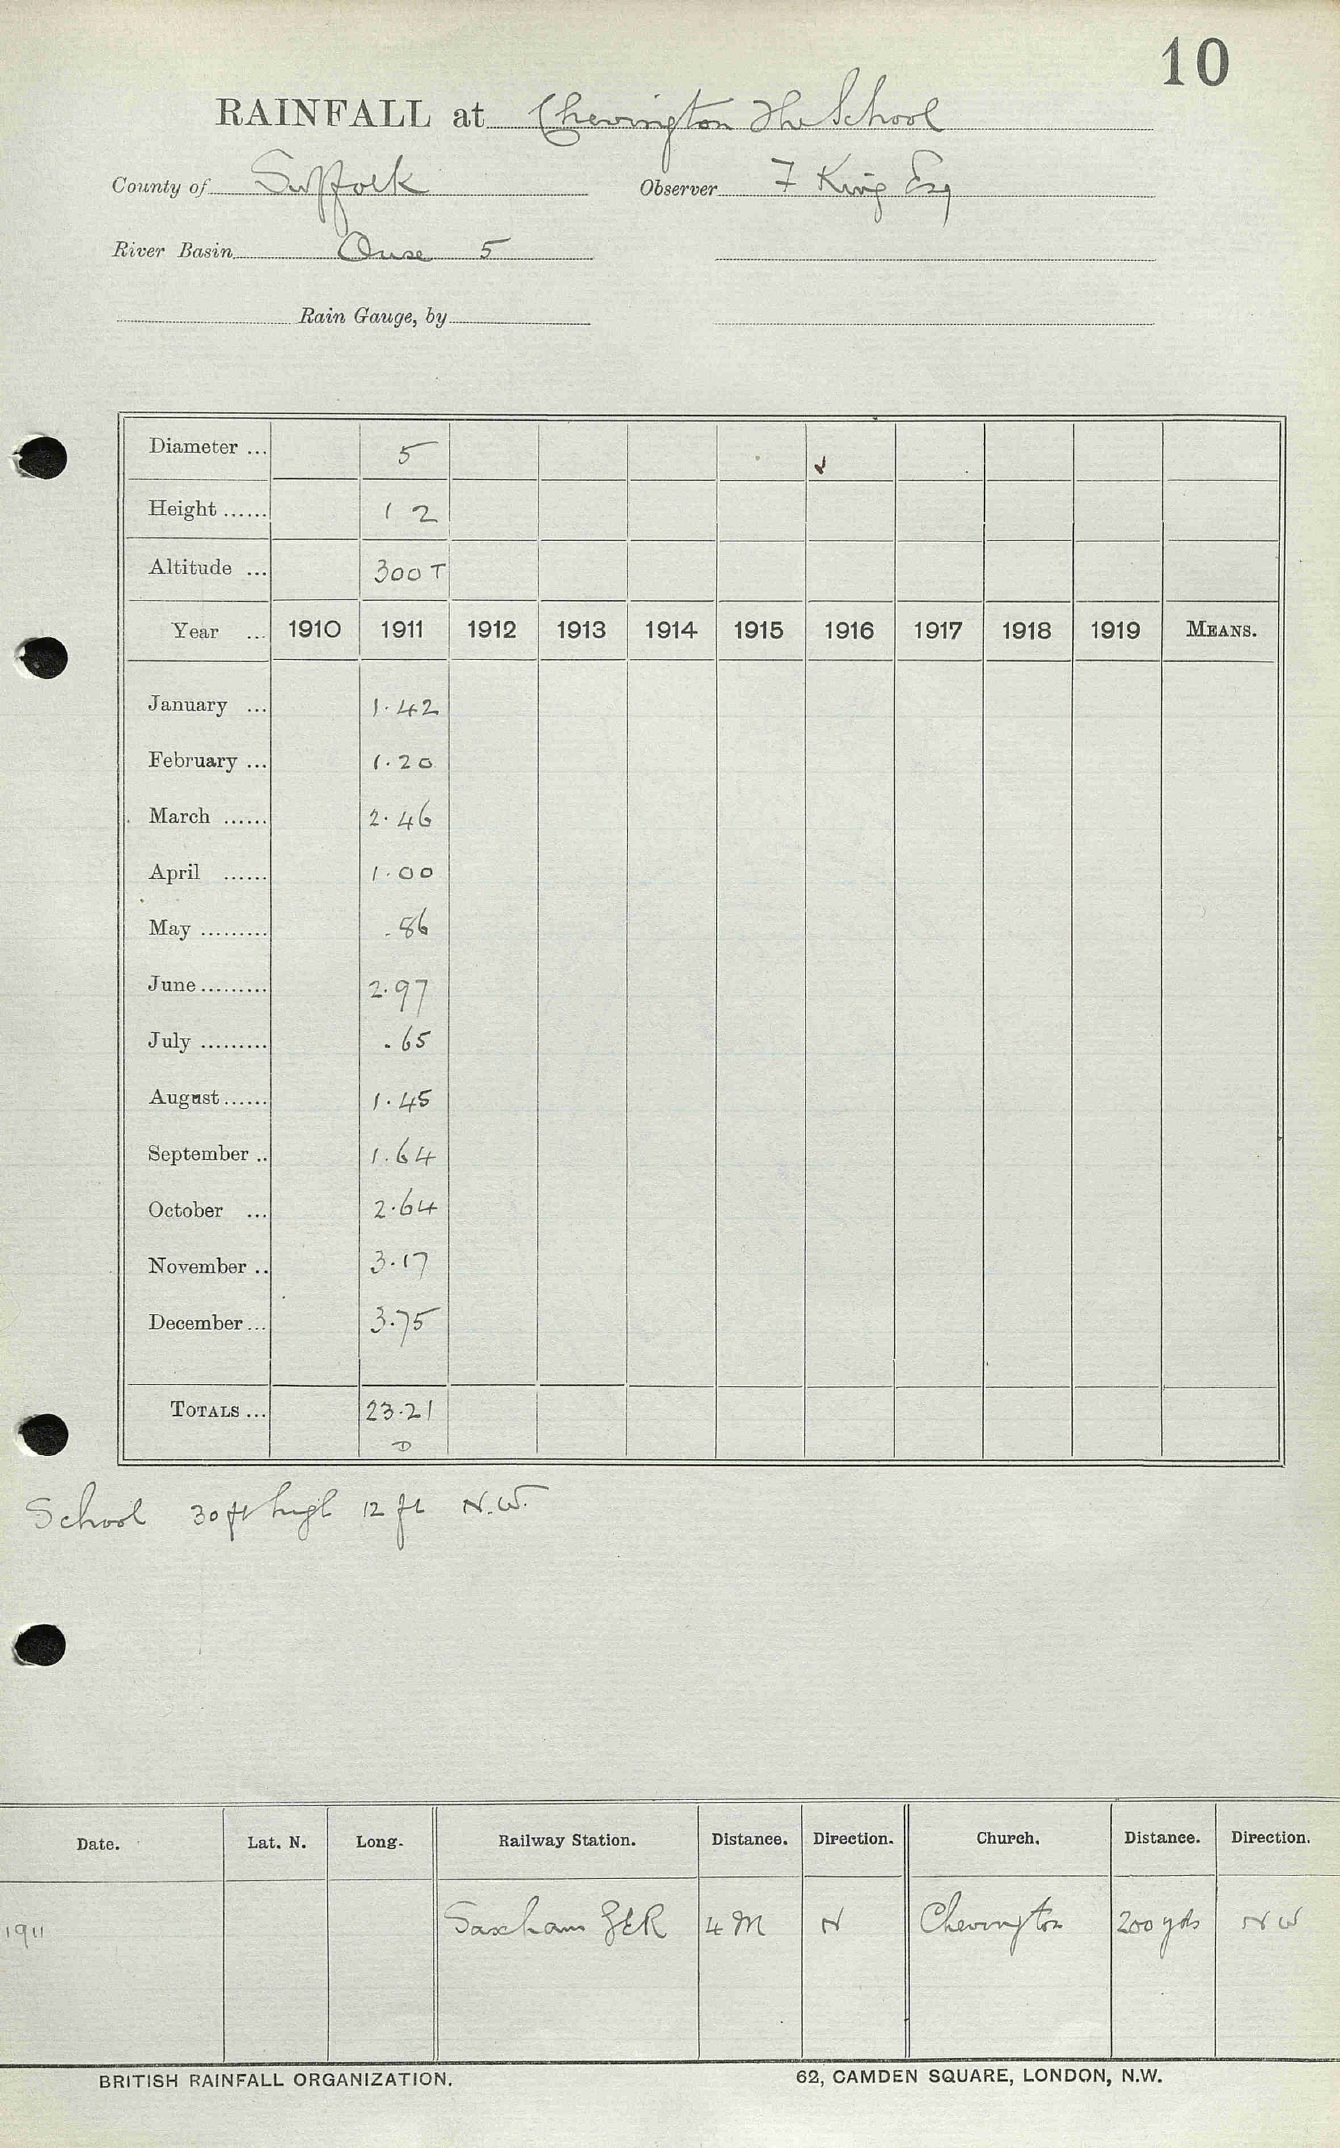 10
RAINFALL at Chevington The School
County of Suffolk Observer F King Esq
River Basin Ouse 5
Rain Gauge, by
Diameter ... 5
Height ...... 1 2
Altitude ... 300 T
Year ... 1910 1911 1912 1913 1914 1915 1916 1917 1918 1919 MEANS.
January ... 1.42
February ... 1.20
March ...... 2.46
April ...... 1.00
May ......... .86
June ......... 2.97
July ......... .65
August ...... 1.45
September .. 1.64
October ... 2.64
November .. 3.17
December ... 3.75
TOTALS ... 23.21
D
School 30 ft high 12 ft N.W.
Date. Lat. N. Long. Railway Station. Distance. Direction. Church. Distance. Direction.
1911 Saxham GER 4 M N Chevington 200 yds NW
BRITISH RAINFALL ORGANIZATION. 62, CAMDEN SQUARE, LONDON, N.W.